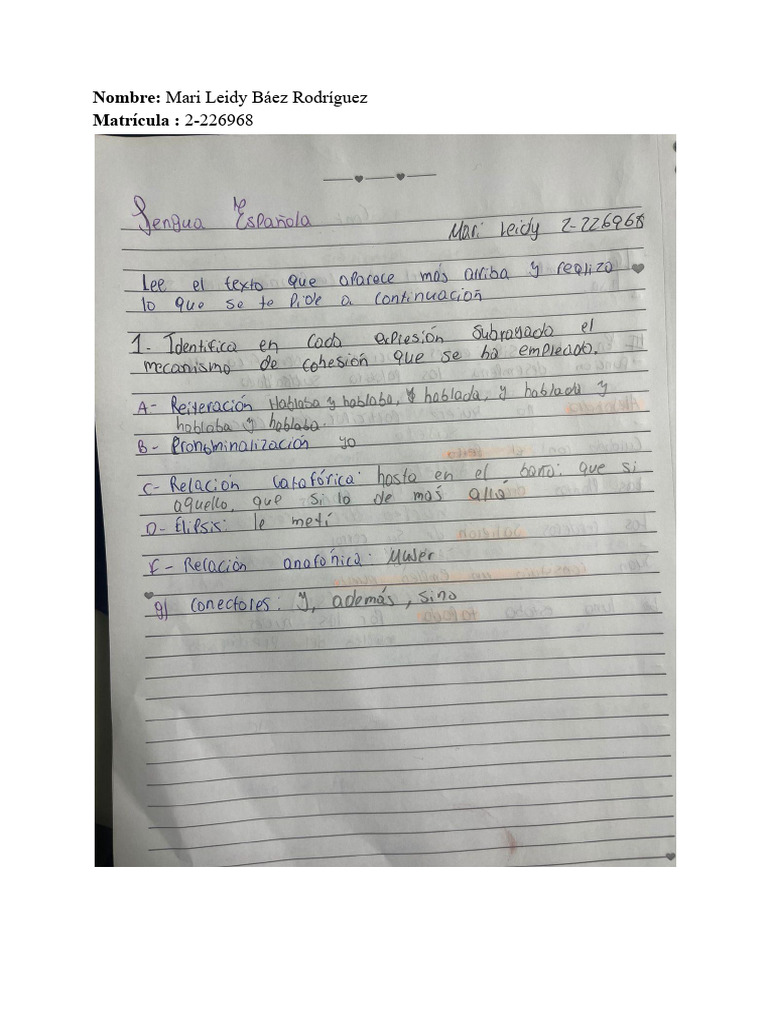 Nombre: Mari Leidy Báez Rodríguez
Matrícula : 2-226968
Lengua Española
Mari Leidy 2-226968
Lee el texto que aparece más arriba y realiza
lo que se te pide a continuación
1. Identifica en cada expresión subrayada el
mecanismo de cohesión que se ha empleado.
A- Reiteración Hablaba y hablaba, y hablada, y hablada y
hablaba y hablaba.
B- Pronominalización yo
C- Relación Catafórica: hasta en el baño: que si
aquello, que si lo de más allá
D- Elipsis: le metí
F- Relación anafórica: Mujer
g) Conectores: y, además, sino